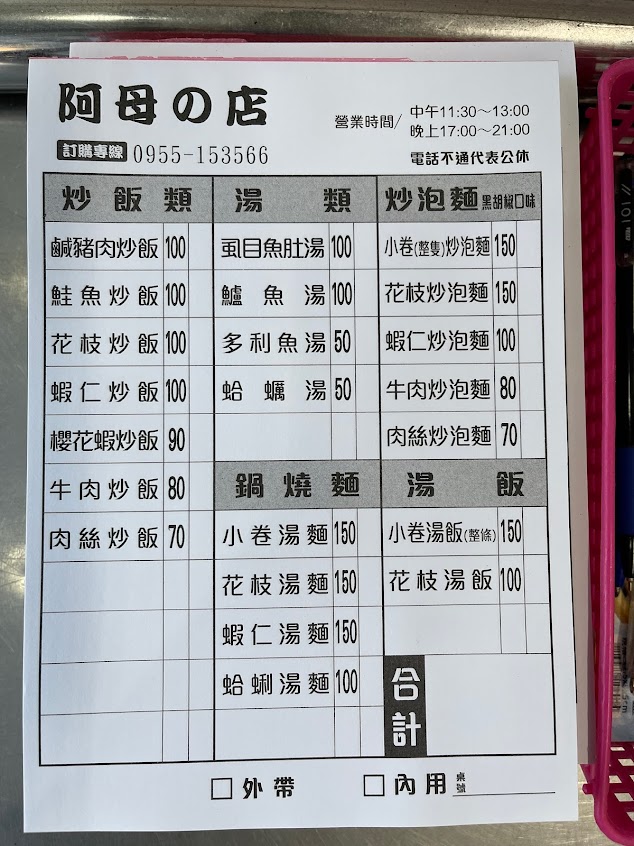 阿母の店
訂購專線 0955-153566
營業時間/ 中午11:30～13:00
晚上17:00～21:00
電話不通代表公休
炒飯類
鹹豬肉炒飯 100
鮭魚炒飯 100
花枝炒飯 100
蝦仁炒飯 100
櫻花蝦炒飯 90
牛肉炒飯 80
肉絲炒飯 70
湯類
虱目魚肚湯 100
鱸魚湯 100
多利魚湯 50
蛤蠣湯 50
鍋燒麵
小卷湯麵 150
花枝湯麵 150
蝦仁湯麵 150
蛤蜊湯麵 100
炒泡麵 黑胡椒口味
小卷(整隻)炒泡麵 150
花枝炒泡麵 150
蝦仁炒泡麵 100
牛肉炒泡麵 80
肉絲炒泡麵 70
湯飯
小卷湯飯(整條) 150
花枝湯飯 100
合計
□外帶 □內用 桌號